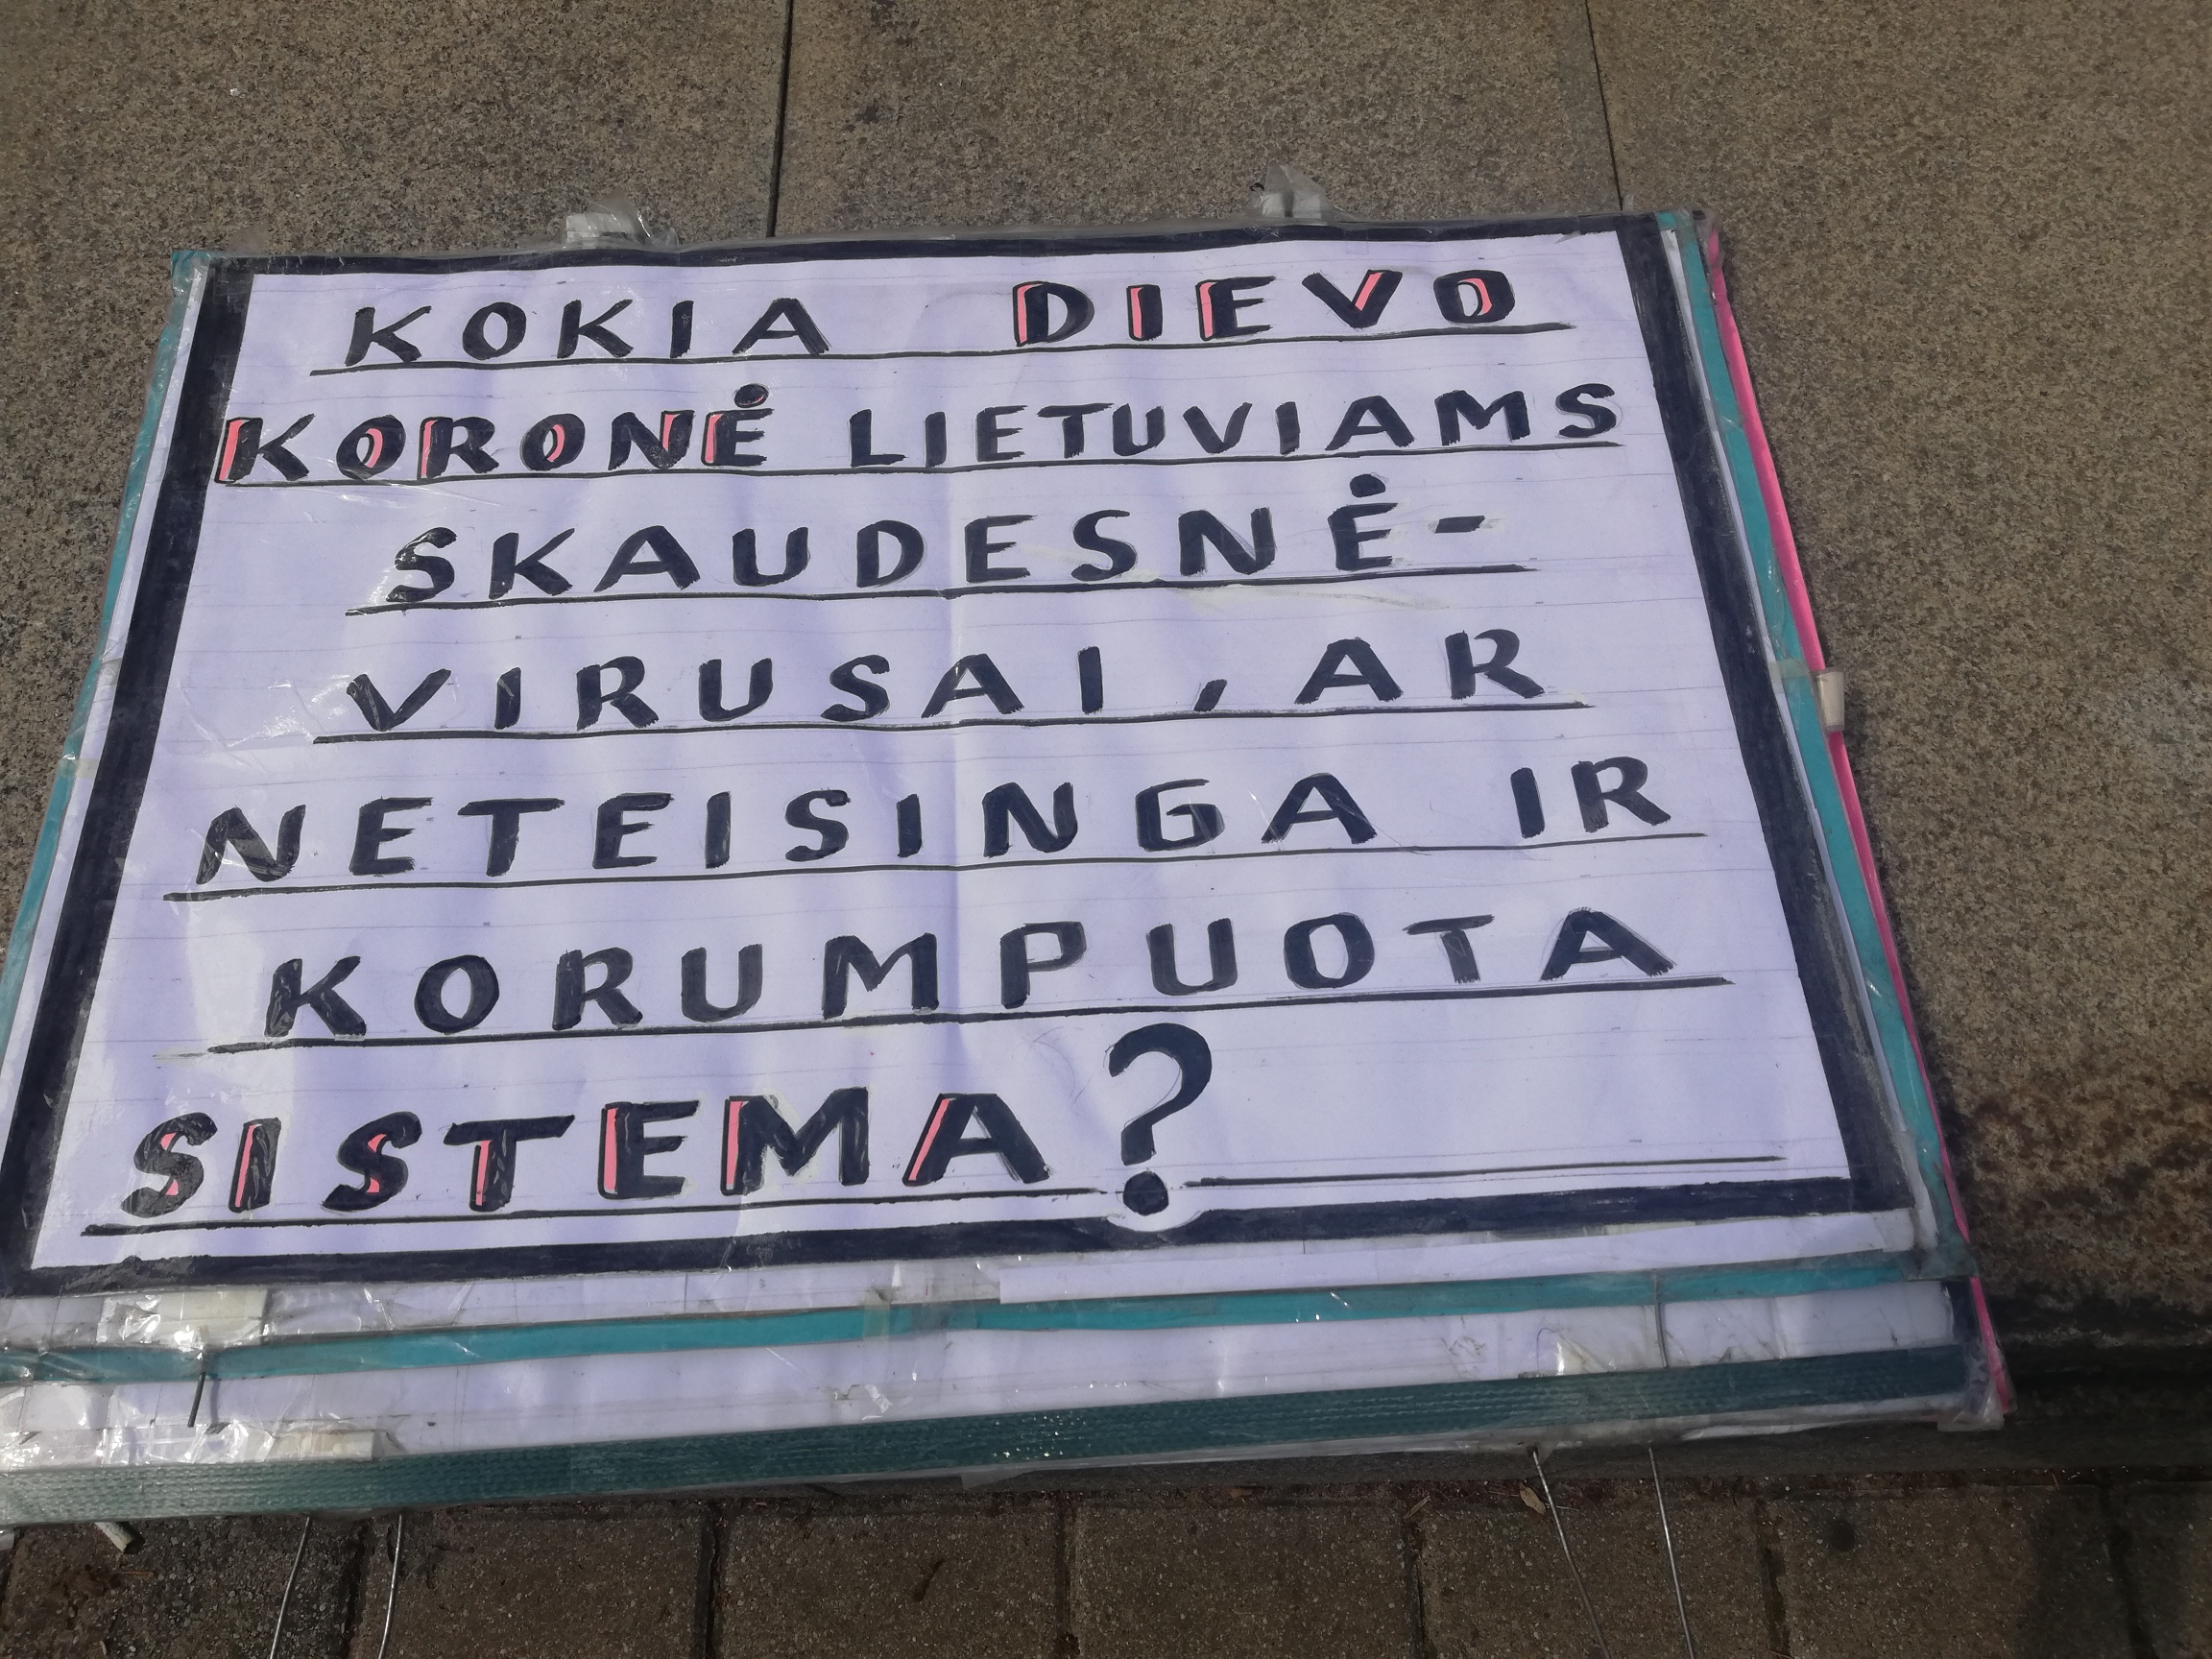 KOKIA DIEVO
KORONĖ LIETUVIAMS
SKAUDESNĖ-
VIRUSAI, AR
NETEISINGA IR
KORUMPUOTA
SISTEMA?